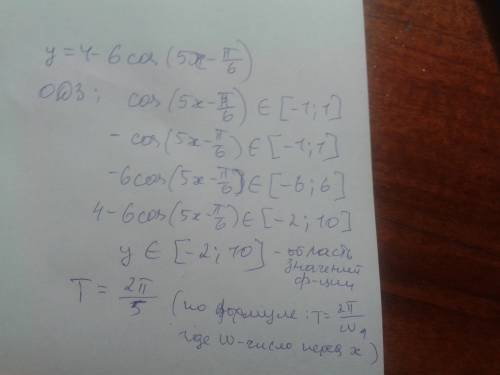 y = 4 - 6 cos (5x - π/6)
ОДЗ: cos (5x - π/6) ∈ [-1; 1]
- cos (5x - π/6) ∈ [-1; 1]
-6 cos (5x - π/6) ∈ [-6; 6]
4 - 6 cos (5x - π/6) ∈ [-2; 10]
y ∈ [-2; 10] - область значений ф-ции
T = 2π/5 (по формуле: T = 2π/ω,
где ω - число перед x)